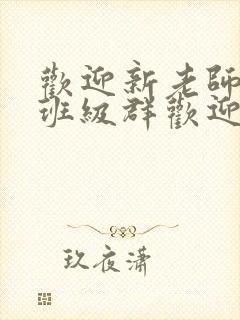 歡迎新老師
班級群歡迎
玖夜瀟